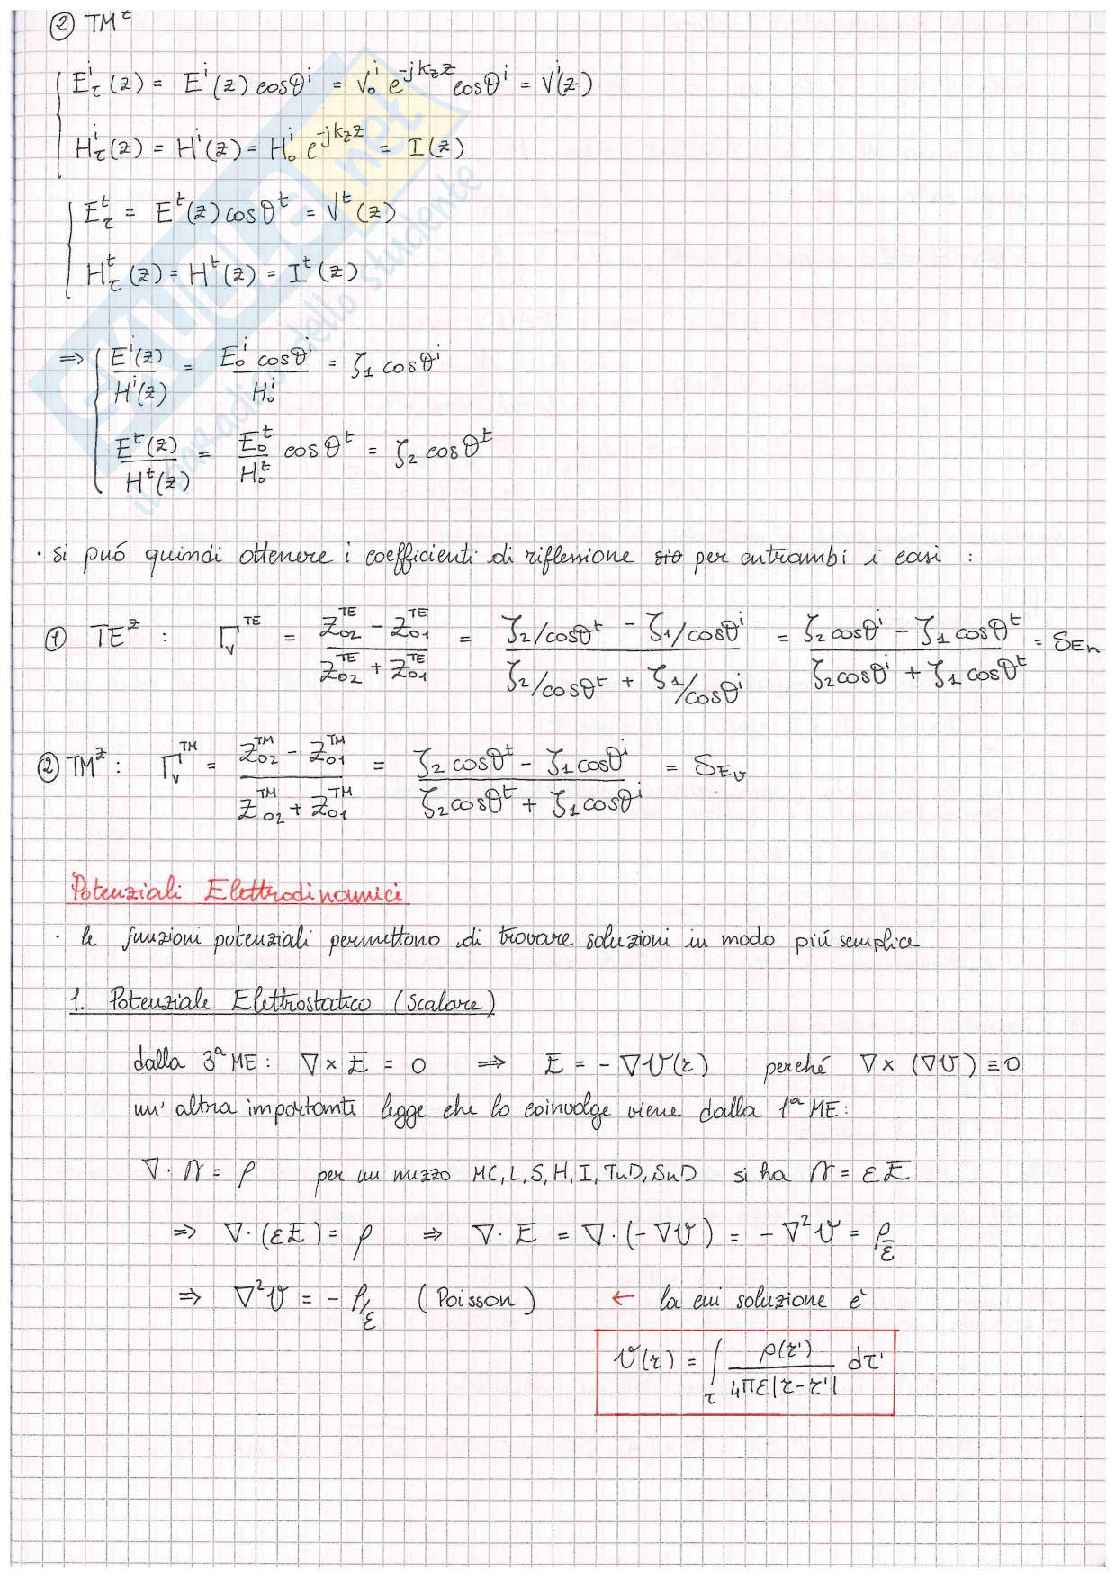 ② TM^z
E_τ^i(z) = E^i(z) cosθ^i = V_0^i e^{-jk_z z} cosθ^i = V^i(z)
H_τ^i(z) = H^i(z) = H_0^i e^{-jk_z z} = I(z)
E_τ^t = E^t(z) cosθ^t = V^t(z)
H_τ^t(z) = H^t(z) = I^t(z)
⇒ E^i(z)/H^i(z) = E_0^i cosθ^i/H_0^i = ζ_1 cosθ^i
E^t(z)/H^t(z) = E_0^t/H_0^t cosθ^t = ζ_2 cosθ^t
· si può quindi ottenere i coefficienti di riflessione per entrambi i casi :
① TE^z : Γ_v^TE = (Z_02^TE - Z_01^TE)/(Z_02^TE + Z_01^TE) = (ζ_2/cosθ^t - ζ_1/cosθ^i)/(ζ_2/cosθ^t + ζ_1/cosθ^i) = (ζ_2 cosθ^i - ζ_1 cosθ^t)/(ζ_2 cosθ^i + ζ_1 cosθ^t) = S_Eh
② TM^z : Γ_v^TM = (Z_02^TM - Z_01^TM)/(Z_02^TM + Z_01^TM) = (ζ_2 cosθ^t - ζ_1 cosθ^i)/(ζ_2 cosθ^t + ζ_1 cosθ^i) = S_Ev
Potenziali Elettrodinamici
· le funzioni potenziali permettono di trovare soluzioni in modo più semplice
1. Potenziale Elettrostatico (Scalare)
dalla 3ª ME: ∇ × E = 0 ⇒ E = -∇V(r) perché ∇ × (∇V) ≡ 0
un'altra importante legge che lo coinvolge viene dalla 1ª ME:
∇ · D = ρ per un mezzo MC, L, S, H, I, TnD, SnD si ha D = εE
⇒ ∇·(εE) = ρ ⇒ ∇·E = ∇·(-∇V) = -∇²V = ρ/ε
⇒ ∇²V = -ρ/ε (Poisson) ← la cui soluzione è
V(r) = ∫_τ ρ(r')/(4πε|r-r'|) dτ'